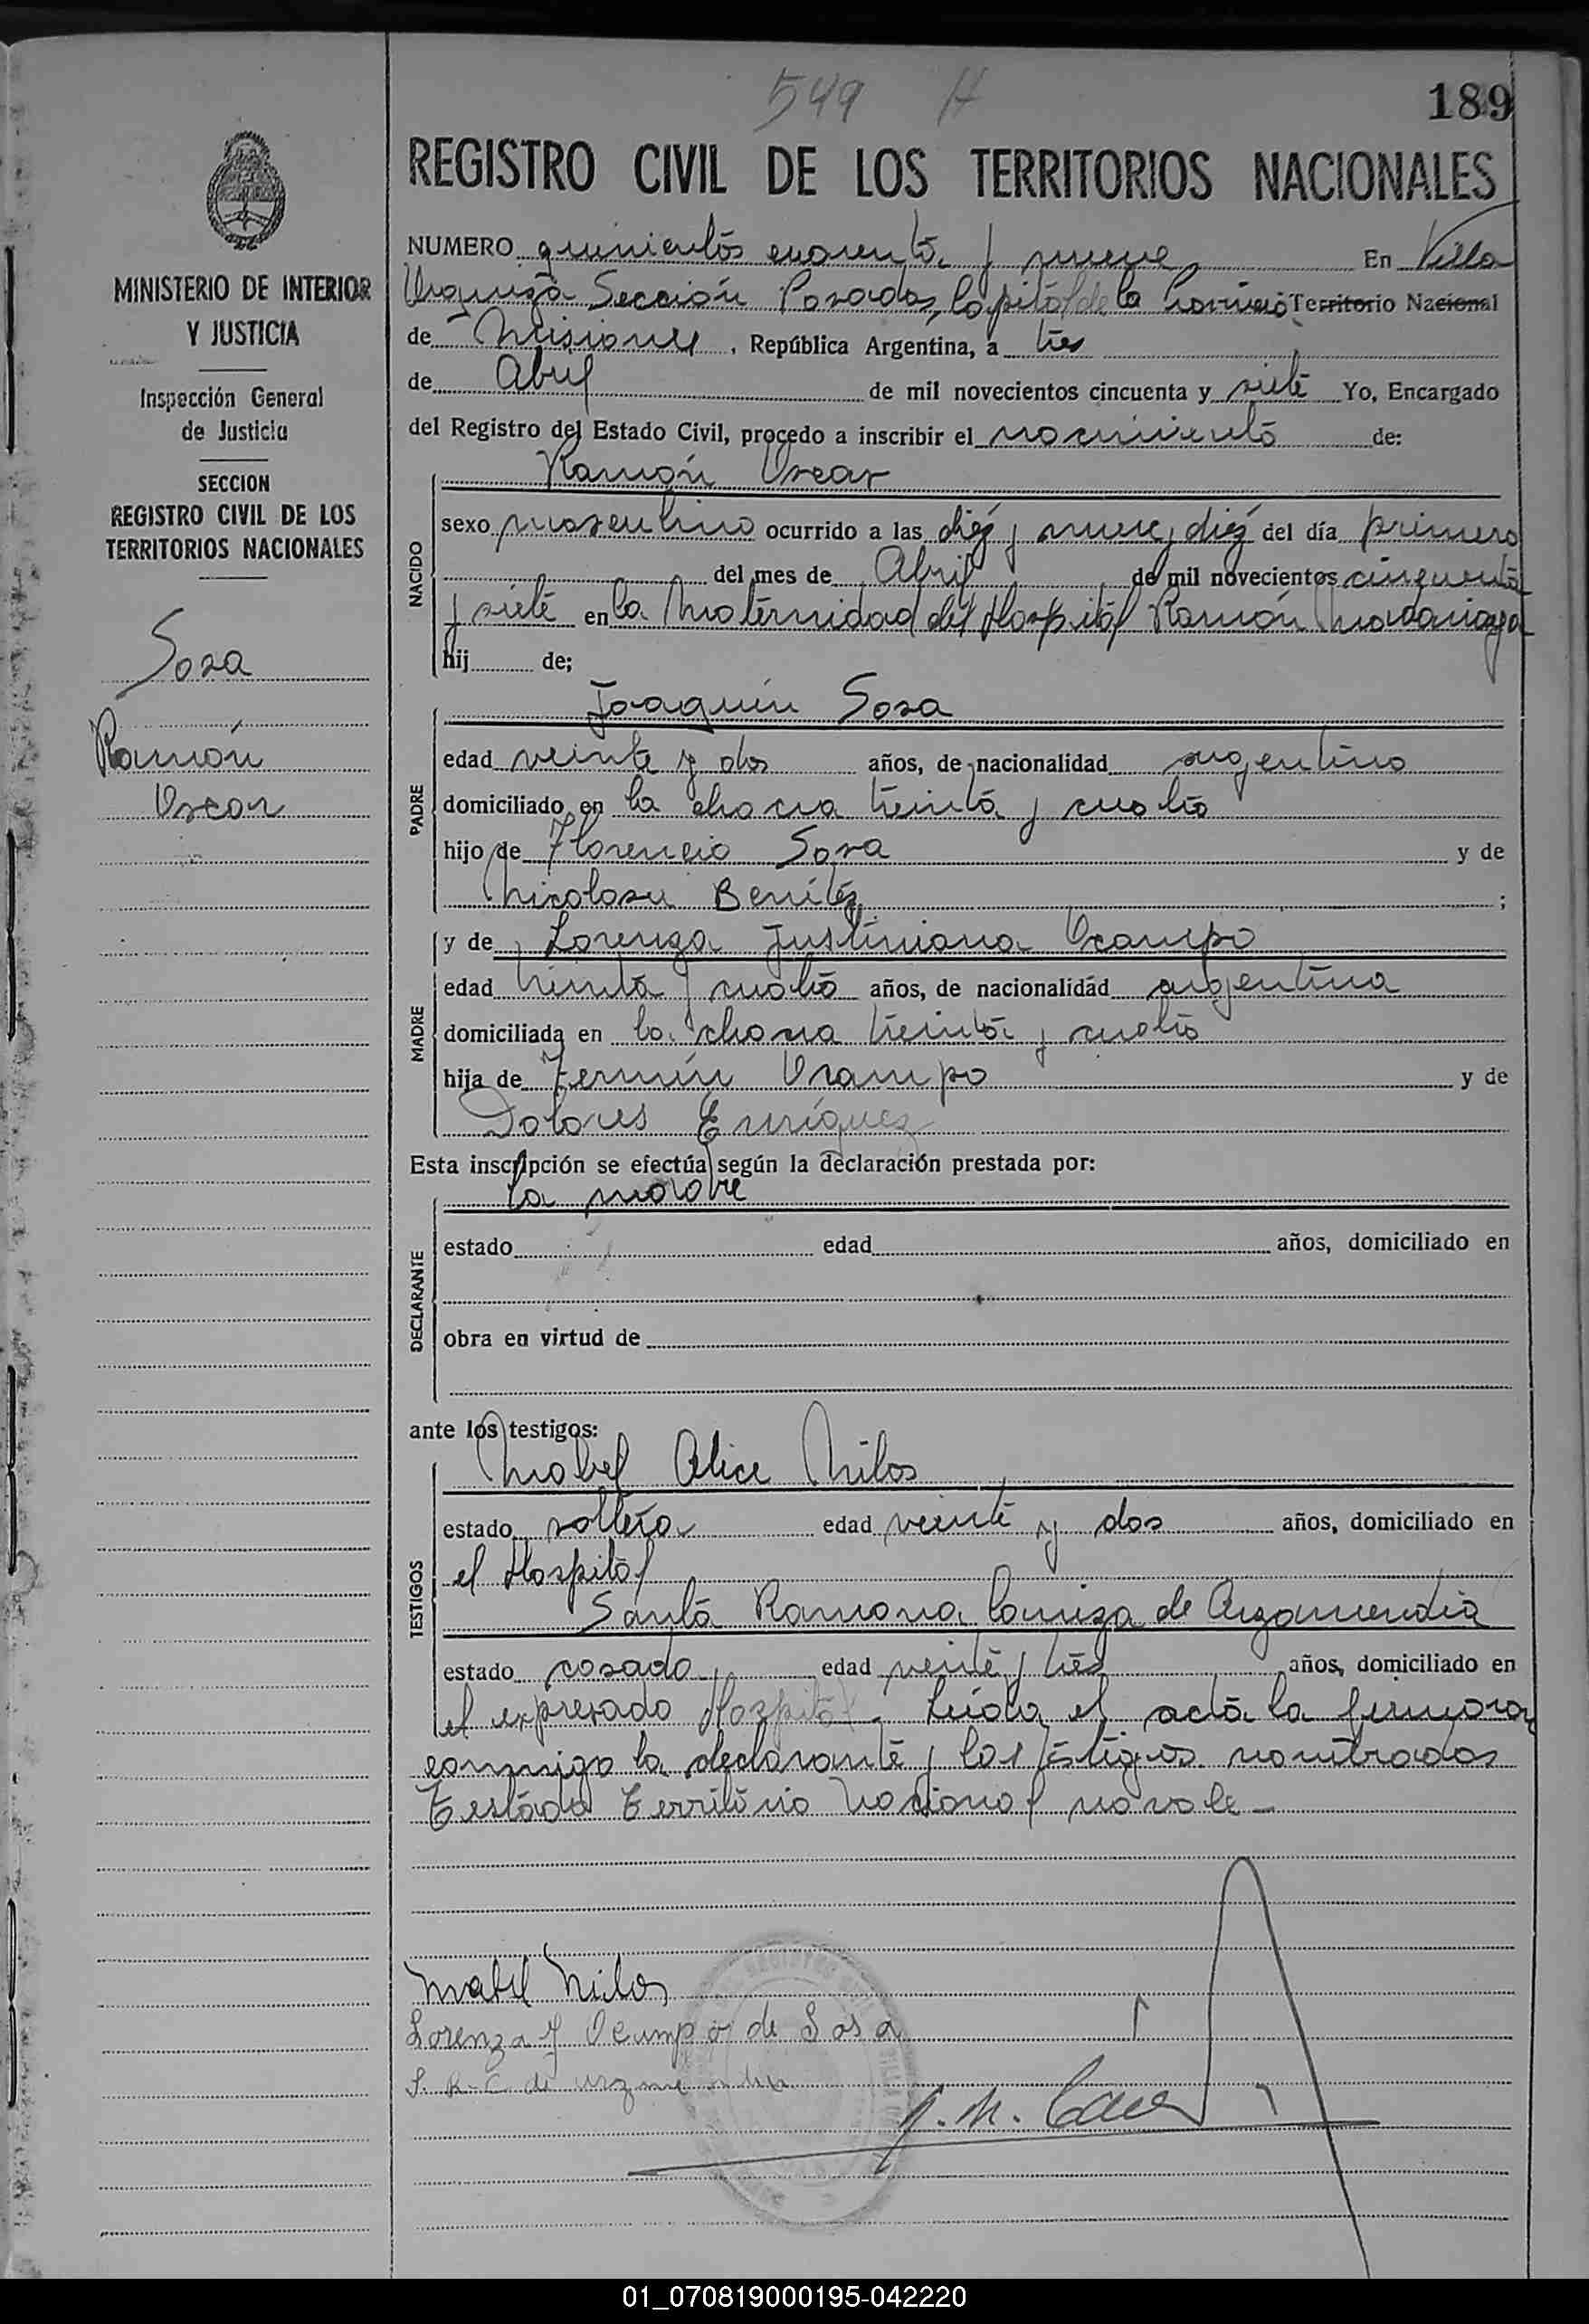 549 H
189
REGISTRO CIVIL DE LOS TERRITORIOS NACIONALES
MINISTERIO DE INTERIOR
Y JUSTICIA
Inspección General
de Justicia
SECCION
REGISTRO CIVIL DE LOS
TERRITORIOS NACIONALES
Sosa
Ramón
Oscar
NUMERO quinientos cuarenta y nueve En Villa
Urquiza Sección Posadas, Capital de la Provincia Territorio Nacional
de Misiones, República Argentina, a tres
de Abril de mil novecientos cincuenta y siete Yo, Encargado
del Registro del Estado Civil, procedo a inscribir el nacimiento de:
Ramón Oscar
NACIDO
sexo masculino ocurrido a las diez y nueve y diez del día primero
del mes de Abril de mil novecientos cincuenta
y siete en la Maternidad del Hospital Ramón Madariaga
hij de;
Joaquín Sosa
PADRE
edad veinte y dos años, de nacionalidad argentino
domiciliado en la chacra treinta y cuatro
hijo de Florencio Sosa y de
Nicolasa Benítez ;
y de Lorenza Justiniana Ocampo
MADRE
edad treinta y cuatro años, de nacionalidad argentina
domiciliada en la chacra treinta y cuatro
hija de Fermín Ocampo y de
Dolores Enríquez
Esta inscripción se efectúa según la declaración prestada por:
la madre
DECLARANTE
estado edad años, domiciliado en
obra en virtud de
ante los testigos:
Mabel Alice Milos
TESTIGOS
estado soltera edad veinte y dos años, domiciliado en
el Hospital
Santa Ramona de
estado casada edad veinte y tres años, domiciliado en
el expresado Hospital. Leida el acta la firmaron
conmigo la declarante y los testigos nombrados
Testado Territorio Nacional no vale -
Mabel Milos
Lorenza J Ocampo de Sosa
S. R. C. de
01_070819000195-042220